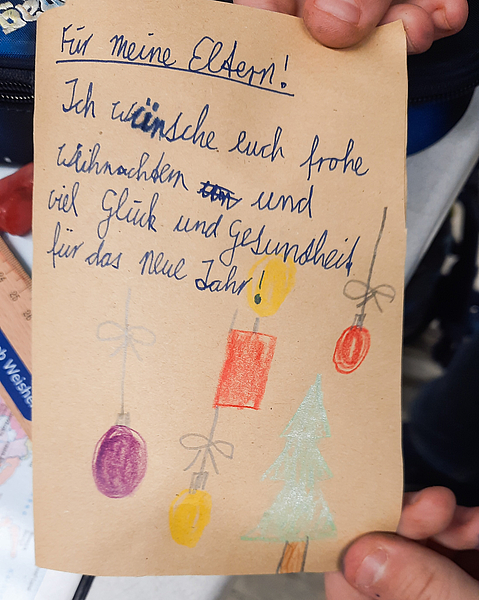 Für meine Eltern!
Ich wünsche euch frohe
Weihnachten und
viel Glück und Gesundheit
für das neue Jahr!
24 25 26